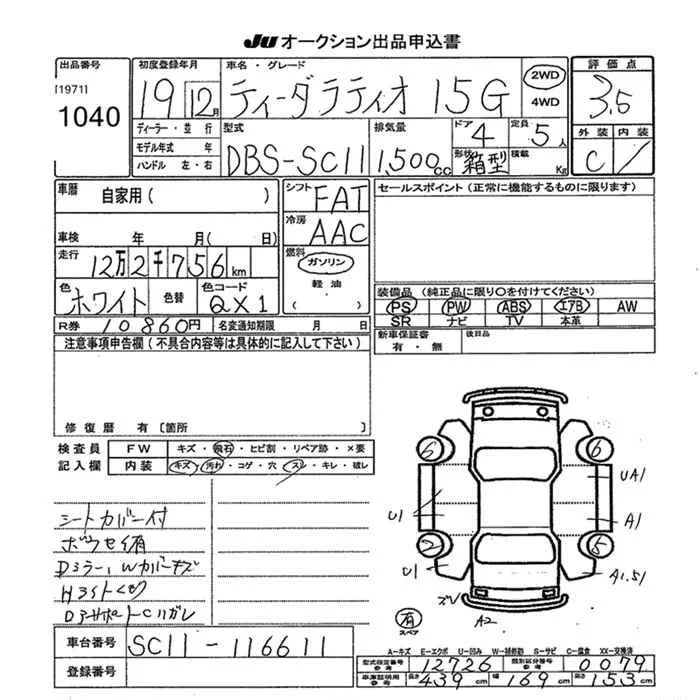 JU オークション出品申込書
出品番号
[1971]
1040
初度登録年月
19 12月
ディーラー・並行
モデル年式 年
ハンドル 左・右
車名・グレード
ティーダラティオ 15G
2WD
4WD
型式
DBS-SC11
排気量
1,500cc
ドア
4
定員
5人
形状
箱型
積載
Kg
評価点
3.5
外装 内装
C
車歴 自家用( )
車検 年 月( 日)
走行
12万2千756km
色
ホワイト
色替
色コード
QX1
シフト
FAT
冷房
AAC
燃料
ガソリン
軽油
R券 10860円 名変通知期限 月 日
セールスポイント(正常に機能するものに限ります)
装備品 (純正品に限り○を付けてください)
PS PW ABS エアB AW
SR ナビ TV 本革
新車保証書
有・無
後日品
注意事項申告欄(不具合内容等は具体的に記入して下さい)
修復歴 有〔箇所 〕
検査員
記入欄
FW キズ・飛石・ヒビ割・リペア跡・×要
内装 キズ・汚れ・コゲ・穴・スレ・キレ・破レ
シートカバー付
Dミラー、Wカバーキズ
6
6
2
5
U1
U1
UA1
A1
A1.S1
ズレ
A2
有
スペア
A-キズ E-エクボ U-凹み W-補修跡 S-サビ C-腐食 XX-交換済
車台番号 SC11-116611
登録番号
型式指定番号
参考
12726
類別区分番号
参考
0079
車庫証明用
参考
長さ 439cm 幅 169cm 高さ 153cm